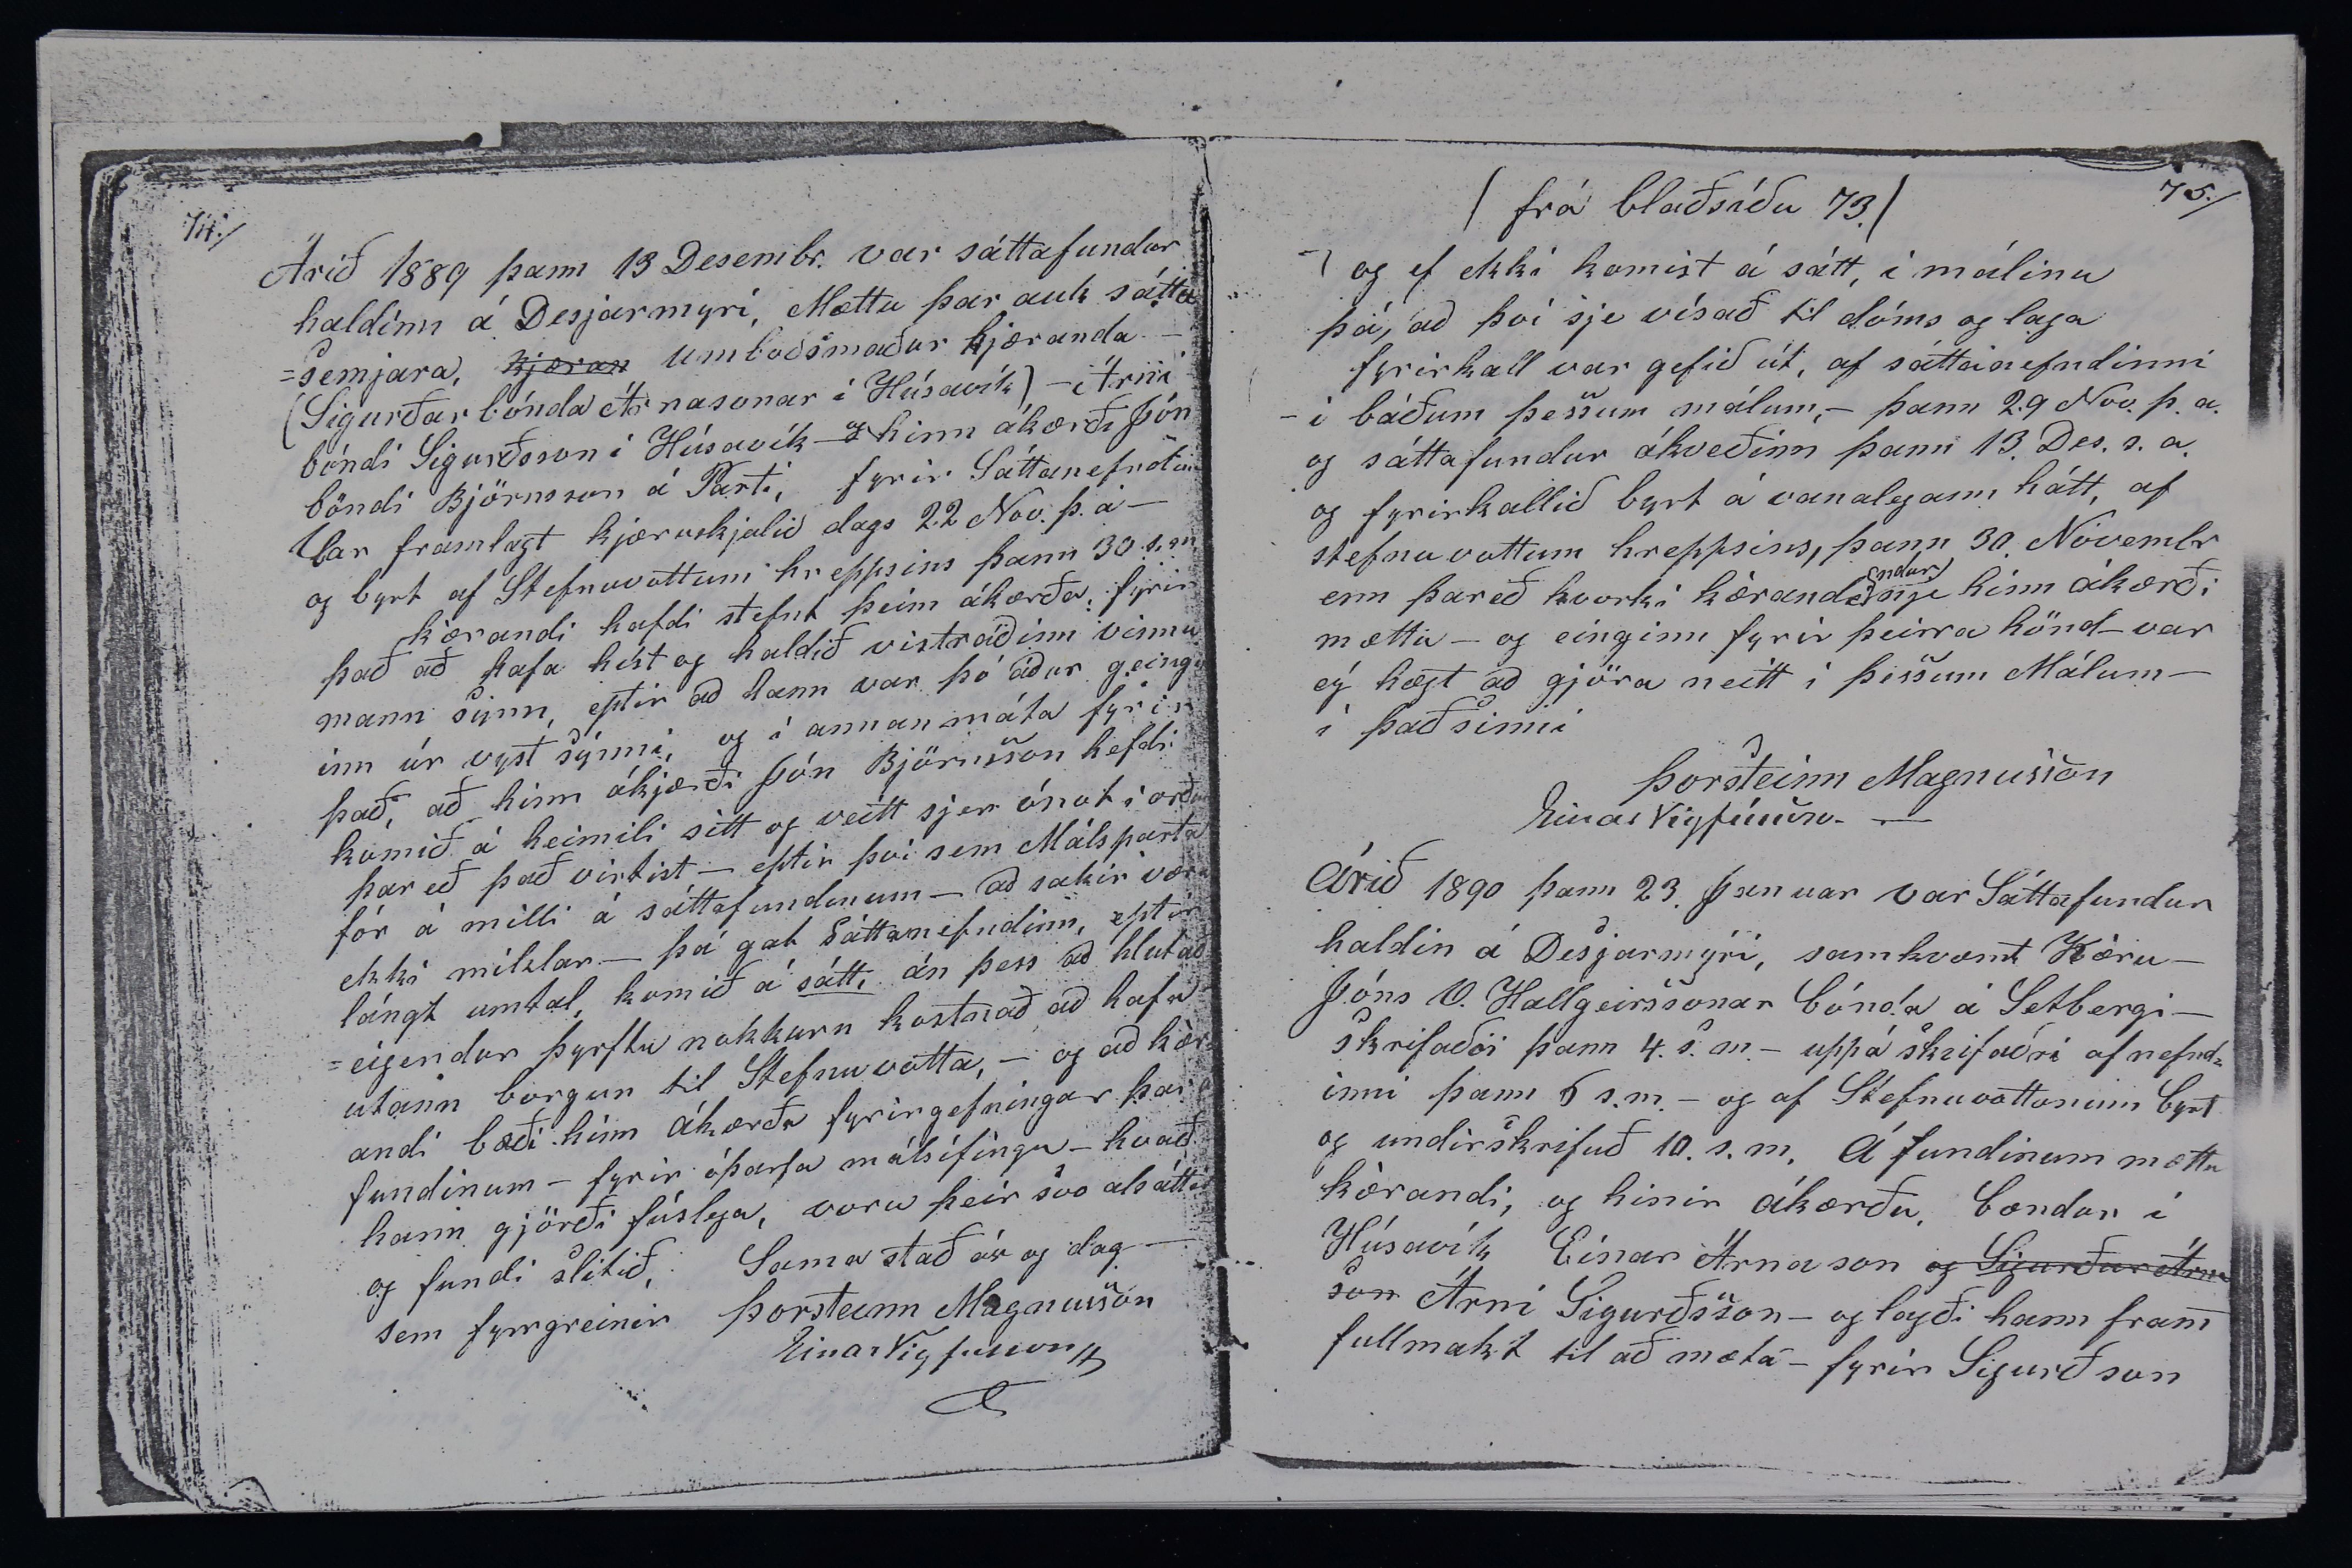 74./
Árið 1889 þann 13 Desembr. var sáttafundur
haldinn á Desjarmyri, Mættu þar auk sátta
=semjara, kjæran umboðsmaður kjæranda –
(Sigurðar bónda Árnasonar í Húsavík) – Árni
bóndi Sigurðsson í Húsavík – og hinn ákærði Jón
bóndi Björnsson á Parti, fyrir Sáttanefndin
Var framlagt kjæruskjalið dags 22 Nov. þ. á –
og byrt af Stefnuvottum hreppsins þann 30 s. m
kjærandi hafdi stefnt þeim ákærða, fyrir
það að hafa híst og haldið vistráðinn vinnu
mann sinn, eptir að hann var þó áður geingi
inn úr vyst sýnni, og í annan máta fyrir
það, að hinn ákjærði Jón Björnsson hefdi
komið á heimili sitt og veitt sjer ónot í orðu
þar eð það virtist – eptir því sem Málsparta
fór á milli á sáttafundinum – að sakir væru
ekki miklar – þá gat Sáttanefndinn, eptir
lángt umtal, komið á sátt, án þess að hlutað
=eigendur þyrftu nokkurn kostnað að hafa
utann borgun til Stefnuvotta, – og að kær
andi bæði hinn ákærða fyrirgefningar þar á
fundinum – fyrir óþarfa málsífingu – hvað
hann gjörði fúslega, voru þeir svo alsáttir
og fundi slitið, Sama stað ár og dag –
sem fyrrgreinir Þorsteinn Magnusson
Einar Vigfusson
75./
/ frá blaðsíðu 73. /
og ef ekki komist á sátt, í málinu
þá, að því sje vísað til dóms og laga
fyrirkall var gefið út, af sáttanefndinni
– í báðum þessum málum, – þann 29 Nov. þ. a.
og sáttafundur ákveðinn þann 13. Des. s. a.
og fyrirkallið byrt á vanalegann hátt, af
stefnuvottum hreppsins, þann 30. Novembr
ndur
enn þareð hvorki kærande nje hinn ákærði
mættu – og einginn fyrir þeirra hönd – var
eý hægt að gjöra neitt í þessum Málum –
í það sinni
Þorsteinn Magnusson
Einar Vigfússon –
Árið 1890 þann 23. Januar var Sáttafundur
haldin á Desjarmýri, samkvæmt Kæru –
Jóns V. Hallgeirssonar bónda á Setbergi –
skrifaðri þann 4. s. m. – uppá skrifaðri af nefnd=
inni þann 6 s. m. – og af Stefnuvottonum byrt
og undirskrifuð 10. s. m. Á fundinum mættu
kærandi, og hinir ákærðu, bændur í
Húsavík Einar Árnason og Sigurður Árna
son Árni Sigurðsson – og lagði hann fram
fullmakt til að mæta – fyrir Sigurð son